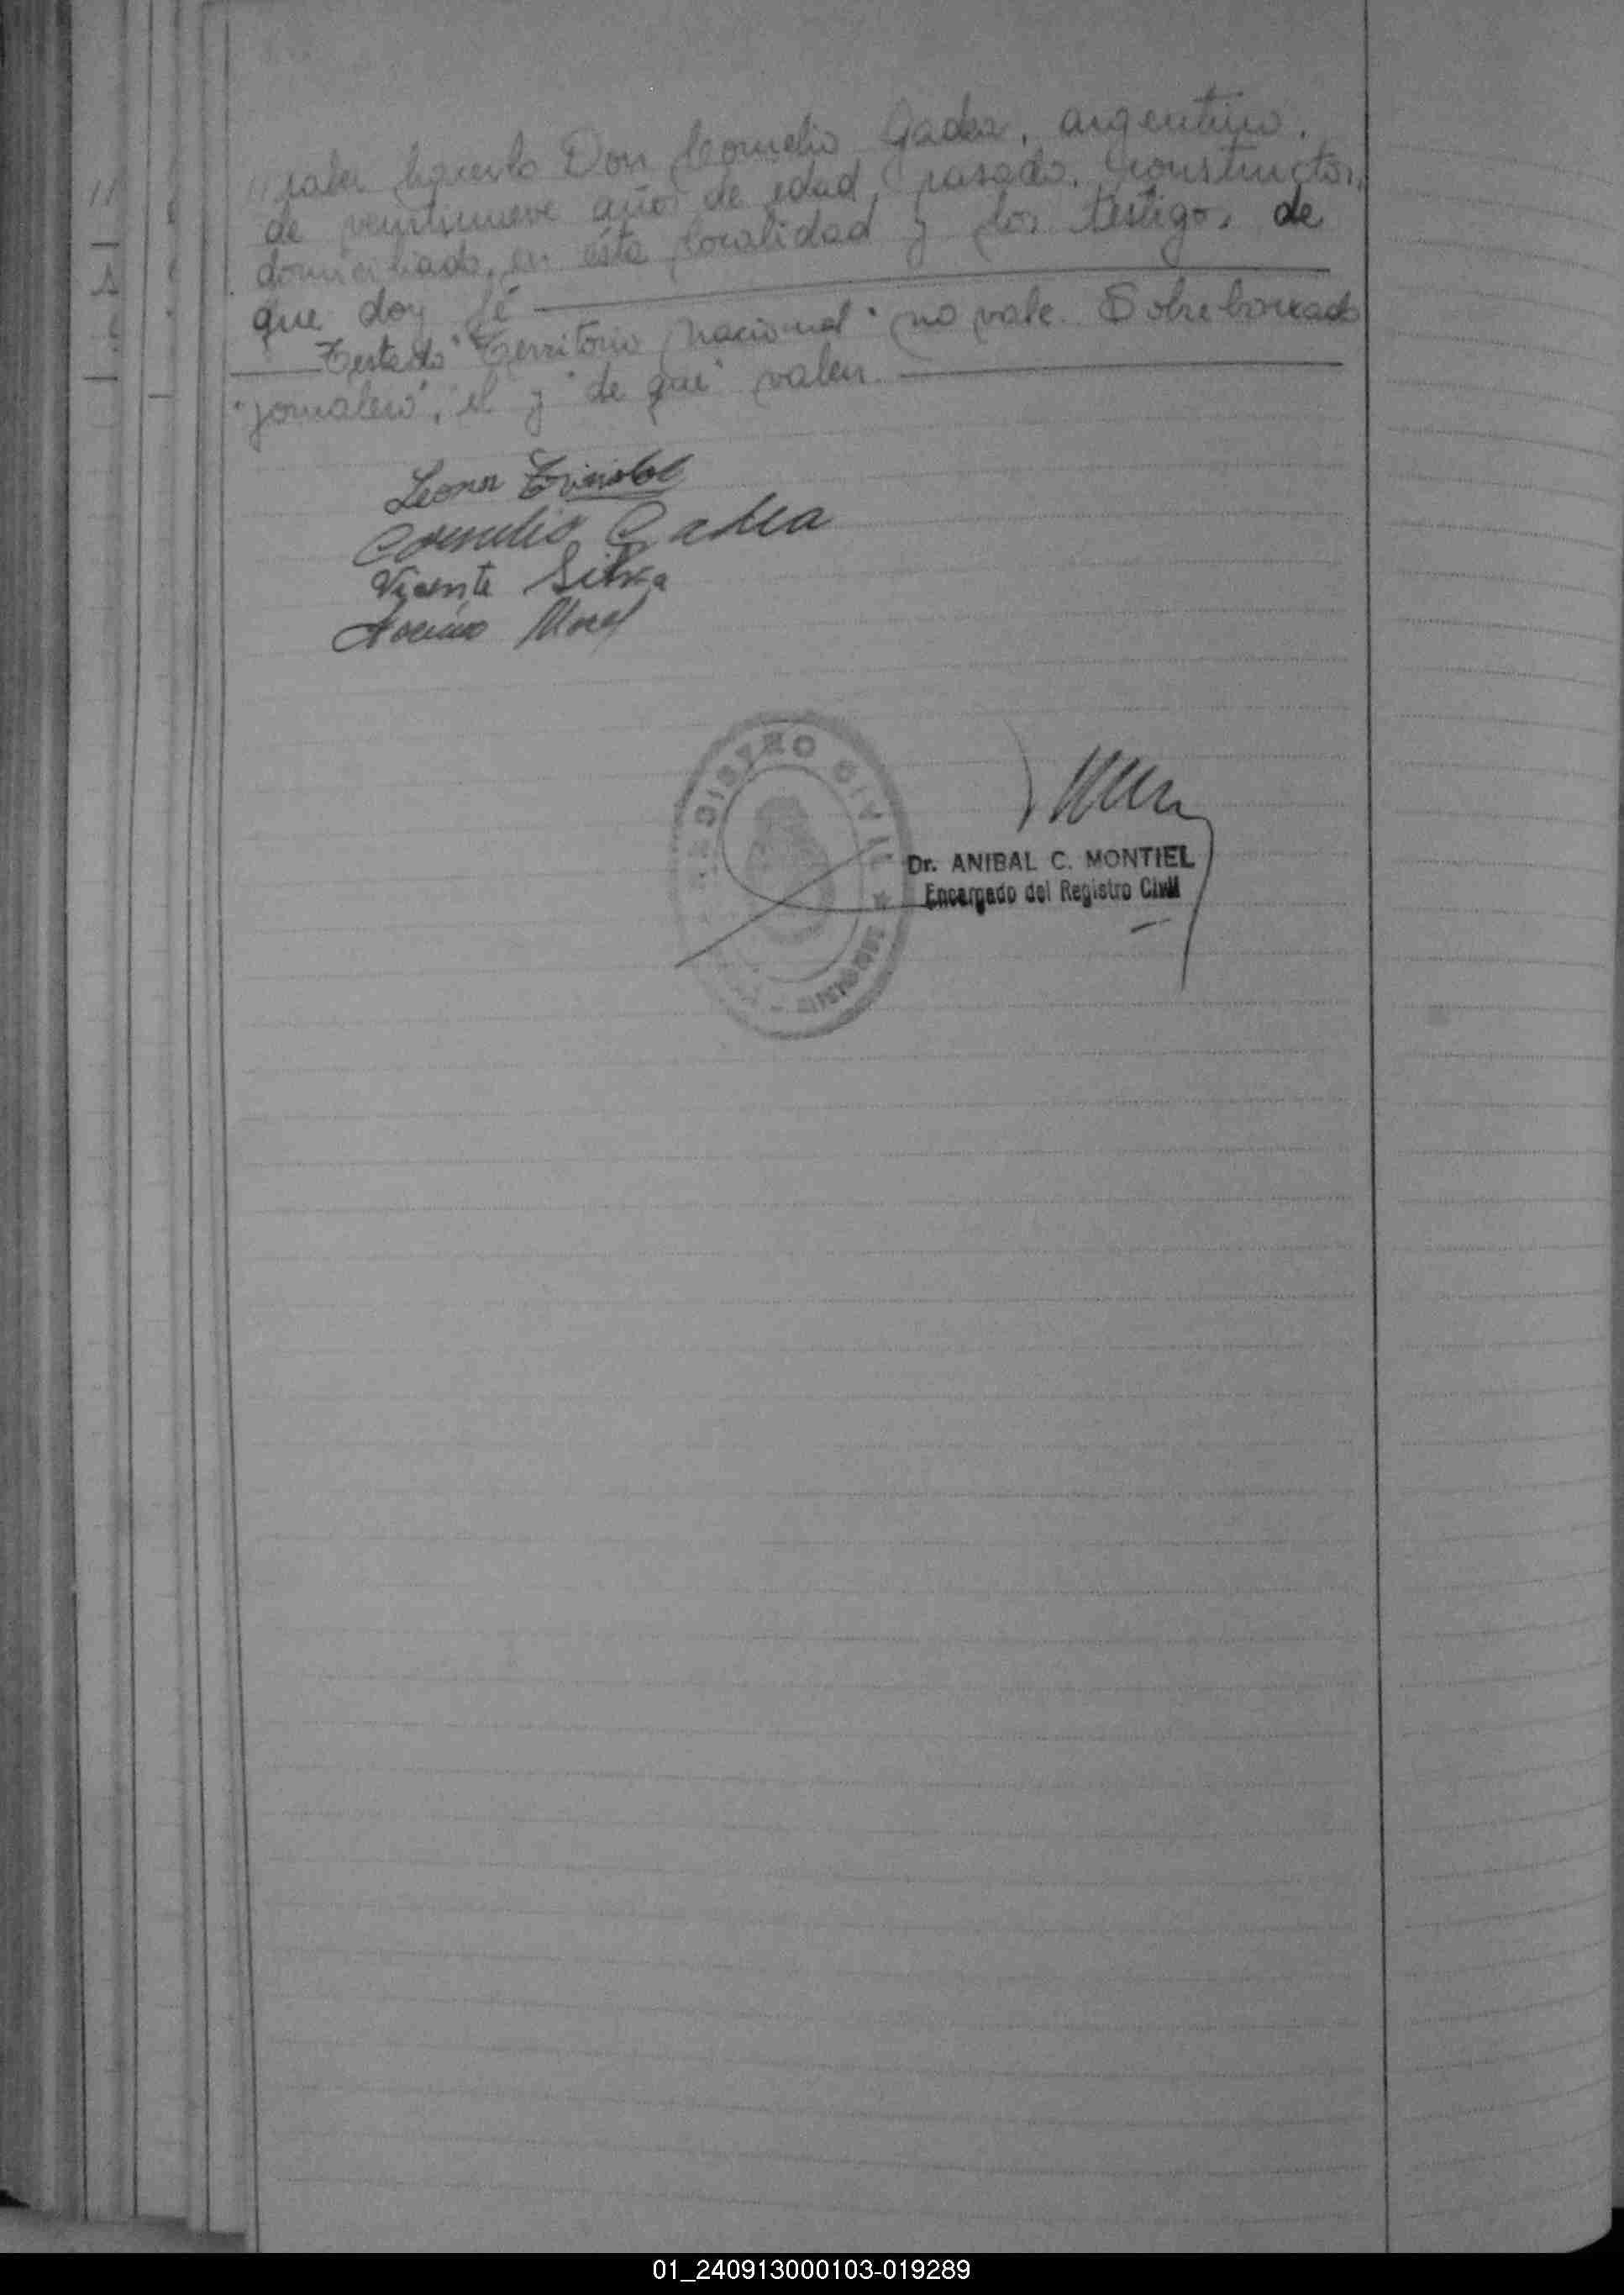 "saber hacerlo Don Cornelio Gadea, argentino,
de veintinueve años de edad, casado, constructor,
domiciliado en ésta localidad y los testigos de
que doy fé
Testado "Territorio Nacional" no vale. Sobreborrado
"jornalero", "el" y "de que" valen.
Leonor
Cornelio Gadea
Vicente Silva
Morel
REGISTRO CIVIL
MISIONES
Dr. ANIBAL C. MONTIEL
Encargado del Registro Civil
01_240913000103-019289